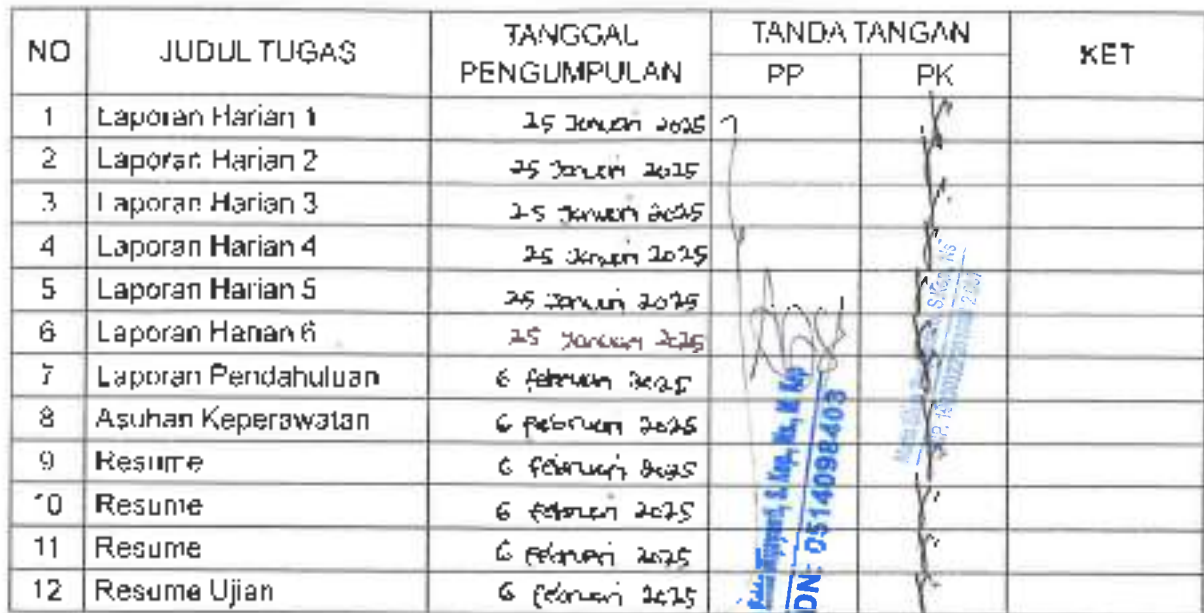 NO JUDUL TUGAS TANGGAL PENGUMPULAN TANDA TANGAN KET
PP PK
1 Laporan Harian 1 25 Januari 2025
2 Laporan Harian 2 25 Januari 2025
3 Laporan Harian 3 25 Januari 2025
4 Laporan Harian 4 25 Januari 2025
5 Laporan Harian 5 25 Januari 2025
6 Laporan Harian 6 25 Januari 2025
7 Laporan Pendahuluan 6 februari 2025
8 Asuhan Keperawatan 6 februari 2025
9 Resume 6 februari 2025
10 Resume 6 februari 2025
11 Resume 6 februari 2025
12 Resume Ujian 6 februari 2025
S. Kep, Ns, M. Kep
DN: 0514098403
S.Kep, Ns